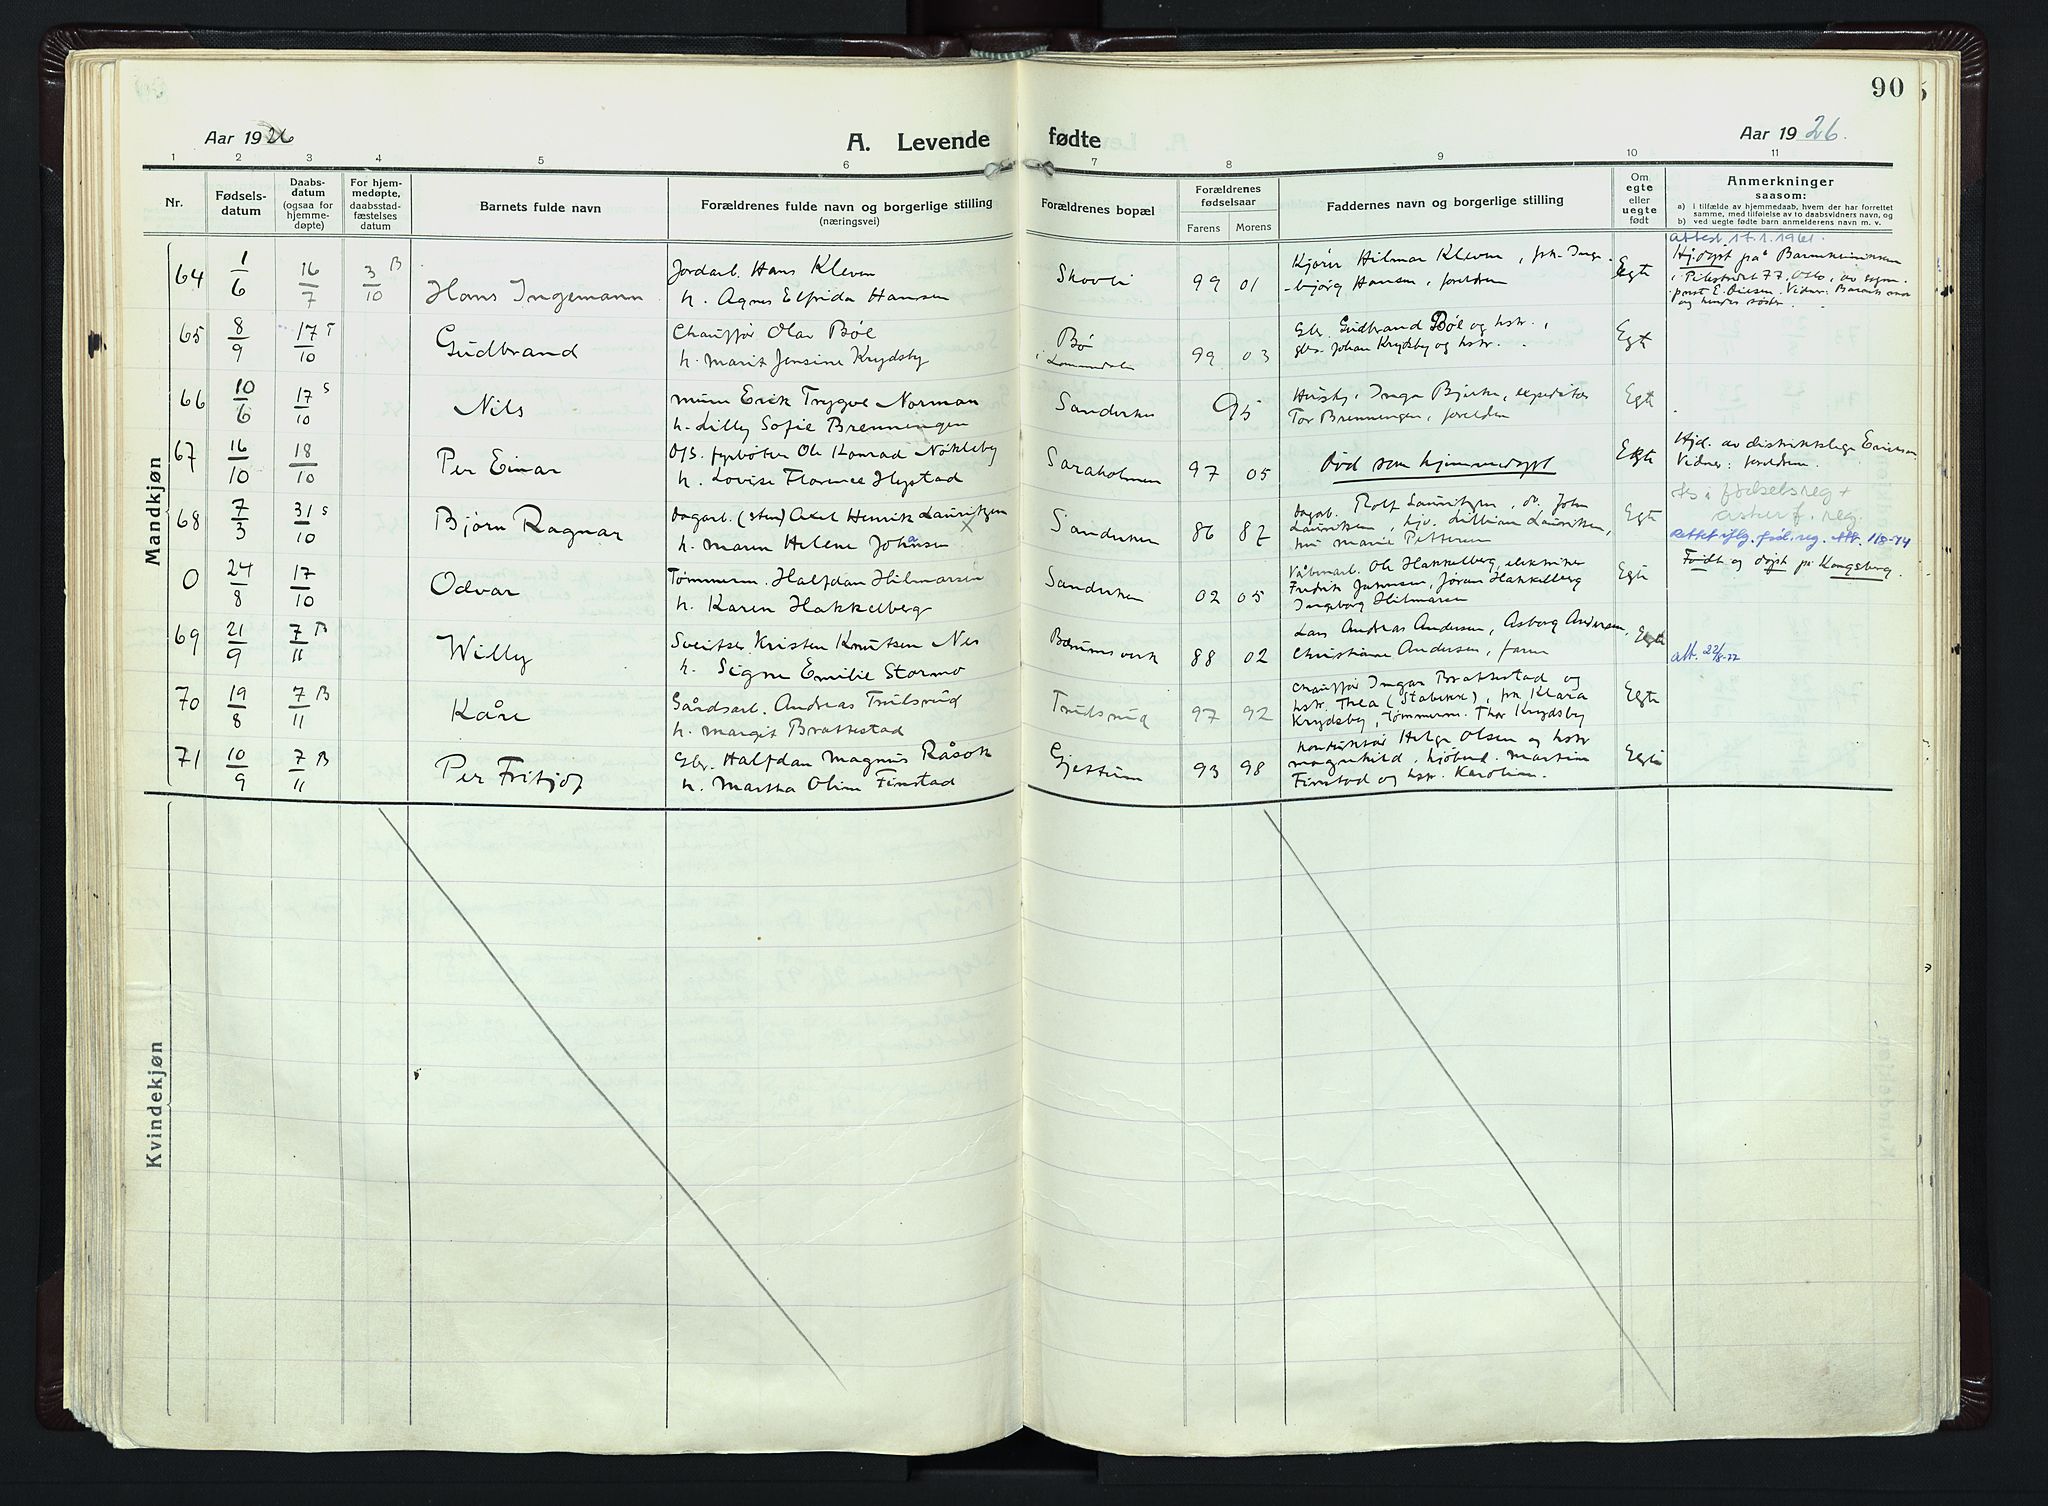 90
Aar 1926
A. Levende
fødte
Aar 1926.
1 2 3 4 5 6 7 8 9 10 11
Nr.
Fødsels-
datum
Daabs-
datum
(ogsaa for
hjemme-
døpte)
For hjem-
medøpte,
daabsstad-
fæstelses
datum
Barnets fulde navn
Forældrenes fulde navn og borgerlige stilling
(næringsvei)
Forældrenes bopæl
Forældrenes
fødselsaar
Farens Morens
Faddernes navn og borgerlige stilling
Om
egte
eller
uegte
født
Anmerkninger
saasom:
a) i tilfælde av hjemmedaab, hvem der har forrettet
samme, med tilføielse av to daabsvidners navn, og
b) ved uegte fødte barn anmelderens navn m. v.
Mandkjøn
attest 17.1.1961.
64 1/6 16/7 3/10 B Hans Ingemann
Jordarb. Hans Kleven
h. Agnes Elfrida Hansen
Skovli 99 01
Hilmar Kleven, frk. Inge-
-bjørg Hansen, foreldrene
Egte
65 8/9 17/10 T Gudbrand
Chauffør Olav Bøe
h. Marit Jensine Krydsby
Bø
i Lommedalen
99 03
Gbr. Gudbrand Bøe og hstr.,
gbr. Johan Krydsby og hstr.
Egte
66 10/6 17/10 S Nils
murer Erik Trygve Norman
h. Lilly Sofie Brenningen
Sandviken 95
Inga Bjerke, expeditør
Tor Brenningen, foreldrene
Egte
67 16/10 18/10 Per Einar
fyrbøter Ole Konrad Nøkleby
h. Lovise Florence Hystad
Saraholmen 97 05
Død som hjemmedøpt
Egte
Hjd. av distriktslege Ericksen
Vidner: foreldrene.
68 7/3 31/10 S Bjørn Ragnar
Dagarb. (sten) Axel Henrik Lauritzen
h. Maren Helene Johansen
Sandviken 86 87
Dagarb. Rolf Lauritzen, do. John
Lauritzen, hjv. Lillian Lauritzen,
fru Marie Pettersen
Egte
fødselsreg +
Rettet iflg. føds.reg. 118-74
0 24/8 17/10 Odvar
Tømmerm. Halfdan Hilmarsen
h. Karen Hakkelberg
Sandviken 02 05
Ole Hakkelberg, elektriker
Fredrik Jahnsen, Jøran Hakkelberg
Ingeborg Hilmarsen
Egte
Født og døpt på Kongsberg.
69 21/9 7/11 B Willy
Sveitser Kristen Knutsen Nes
h. Signe Emilie Stormo
Bærumsverk 88 02
Lars Andreas Andersen, Asborg Andersen,
Christiane Andersen, faren
Egte
att. 22/8-77
70 19/8 7/11 B Kåre
Gårdsarb. Andreas Trulsrud
h. Margit Brattestad
Trulsrud 97 92
Chauffør Ingar Brattestad og
hstr. Thea (Stabekk), frk. Klara
Krydsby, Tømmerm. Thor Krydsby
Egte
71 10/9 7/11 B Per Fritjof
Gbr. Halfdan Magnus Råsok
h. Martha Oline Finstad
Gjettum 93 98
Konduktør Helge Olsen og hstr
Magnhild, kjøbmd. Martin
Finstad og hstr. Karoline.
Egte
Kvindekjøn